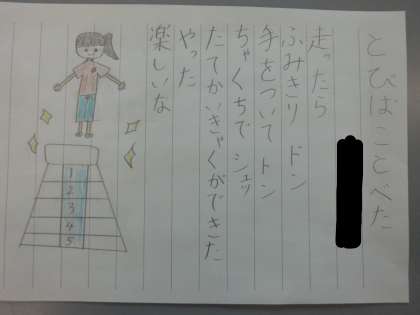 とびばことべた
走ったら
ふみきり ドン
手をついて トン
ちゃくちで シュッ
たてかいきゃくができた
やった
楽しいな
1
2
3
4
5